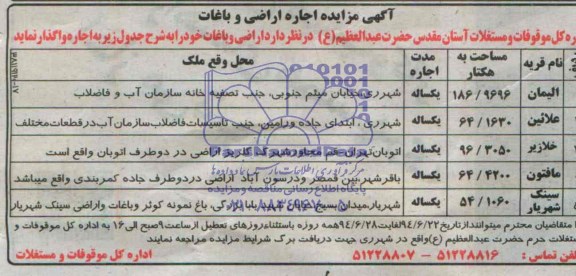 آگهی مزایده اجاره اراضی و باغات
اداره کل موقوفات و مستغلات آستان مقدس حضرت عبدالعظیم (ع) در نظر دارد اراضی و باغات خود را به شرح جدول زیر به اجاره واگذار نماید
نام قریه مساحت به هکتار مدت اجاره محل وقع ملک
الیمان ۱۸۶/۹۶۹۶ یکساله شهرری، خیابان میثم جنوبی، جنب تصفیه خانه سازمان آب و فاضلاب
علائین ۶۴/۱۶۳۰ یکساله شهرری، ابتدای جاده ورامین، جنب تاسیسات فاضلاب سازمان آب در قطعات مختلف
خلازیر ۹۶/۳۰۵۰ یکساله اتوبان تهران قم مجاور شهرک گلریز اراضی در دو طرف اتوبان واقع است
مافتون ۶۴/۴۲۰۰ یکساله باقرشهر، بین قمصر و درسون آباد اراضی در دو طرف جاده کمربندی واقع میباشد
سینک شهریار ۵۴/۱۰۶۰ یکساله شهریار، میدان بسیج، خیابان ولیعصر، باغ نمونه کوثر و باغات و اراضی سینک شهریار
متقاضیان محترم میتوانند از تاریخ ۹۴/۶/۲۲ لغایت ۹۴/۶/۲۸ همه روزه باستثناء روزهای تعطیل از ساعت ۹ صبح الی ۱۶ به اداره کل موقوفات و
مستغلات حرم حضرت عبدالعظیم (ع) واقع در شهرری جهت دریافت برگ شرایط مزایده مراجعه نمایند
تلفن تماس: ۵۱۲۲۸۸۱۶ - ۵۱۲۲۸۸۰۷ اداره کل موقوفات و مستغلات